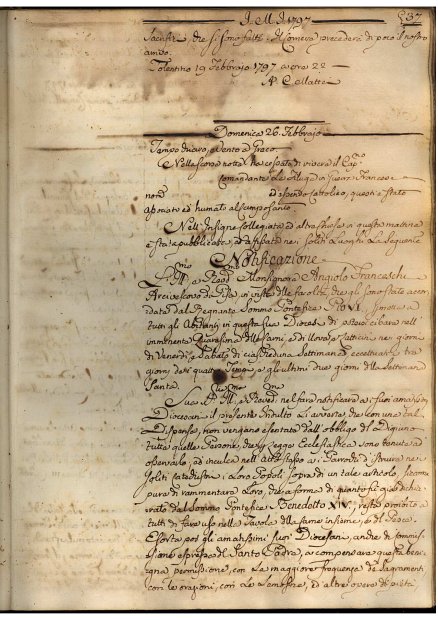 I. M. I. 1797 237
Sacrifizi che si sono fatti. Il Corriere precederà di poco il nostro
arrivo.
Tolentino 19 Febbrajo 1797 a ore 22 —
Domenica 26. Febbrajo
Tempo chiaro, e vento a Greco.
Nella scorsa notte ha cessato di vivere il
Comandante Francese
note ed essendo Cattolico, questi è stato
ed humato al Camposanto
Nell'Insigne Collegiata ed altre Chiese in questa mattina
è stata pubblicata, ed affissata nei soliti Luoghi la Seguente
Notificazione
Monsignore Angiolo Franceschi
Arcivescovo di Pisa in vista delle facoltà, che gli sono state accor-
date dal Regnante Sommo Pontefice Pio VI. permette a
tutti gli Abitanti in questa sua Diocesi di potersi cibare nell'
imminente Quaresima della carni, e di Uova, e Latticini nei giorni
di Venerdì, e Sabato di ciascheduna Settimana, eccettuati i tre
giorni dei quattro Tempi, e gli ultimi due giorni della Settimana
Santa.
Sua nel fare notificare ai suoi amatissimi
Diocesani il presente Indulto Li avverte, che con una tal
Dispensa, non vengano esentate dall'obbligo del Digiuno
tutte quelle Persone, che per Legge Ecclesiastica sono tenute ad
osservarlo, ed incarica nell'atto stesso i Parrochi d'istruire nei
soliti catechismi i Loro Popoli sopra di un tale articolo, siccome
pure di rammentare Loro, che a forma di quanto fu già dichia-
rato dal Sommo Pontefice Benedetto XIV, resta proibito a
tutti di far uso nelle Tavole della carne insieme, e del Pesce.
Esorta poi gli amatissimi suoi Diocesani, anche di commis-
sione espressa del Santo Padre, a compensare questa beni-
gna permissione, con la maggiore frequenza dei Sagramenti
con le orazioni, con le Elemosine, ed altre opere di pietà